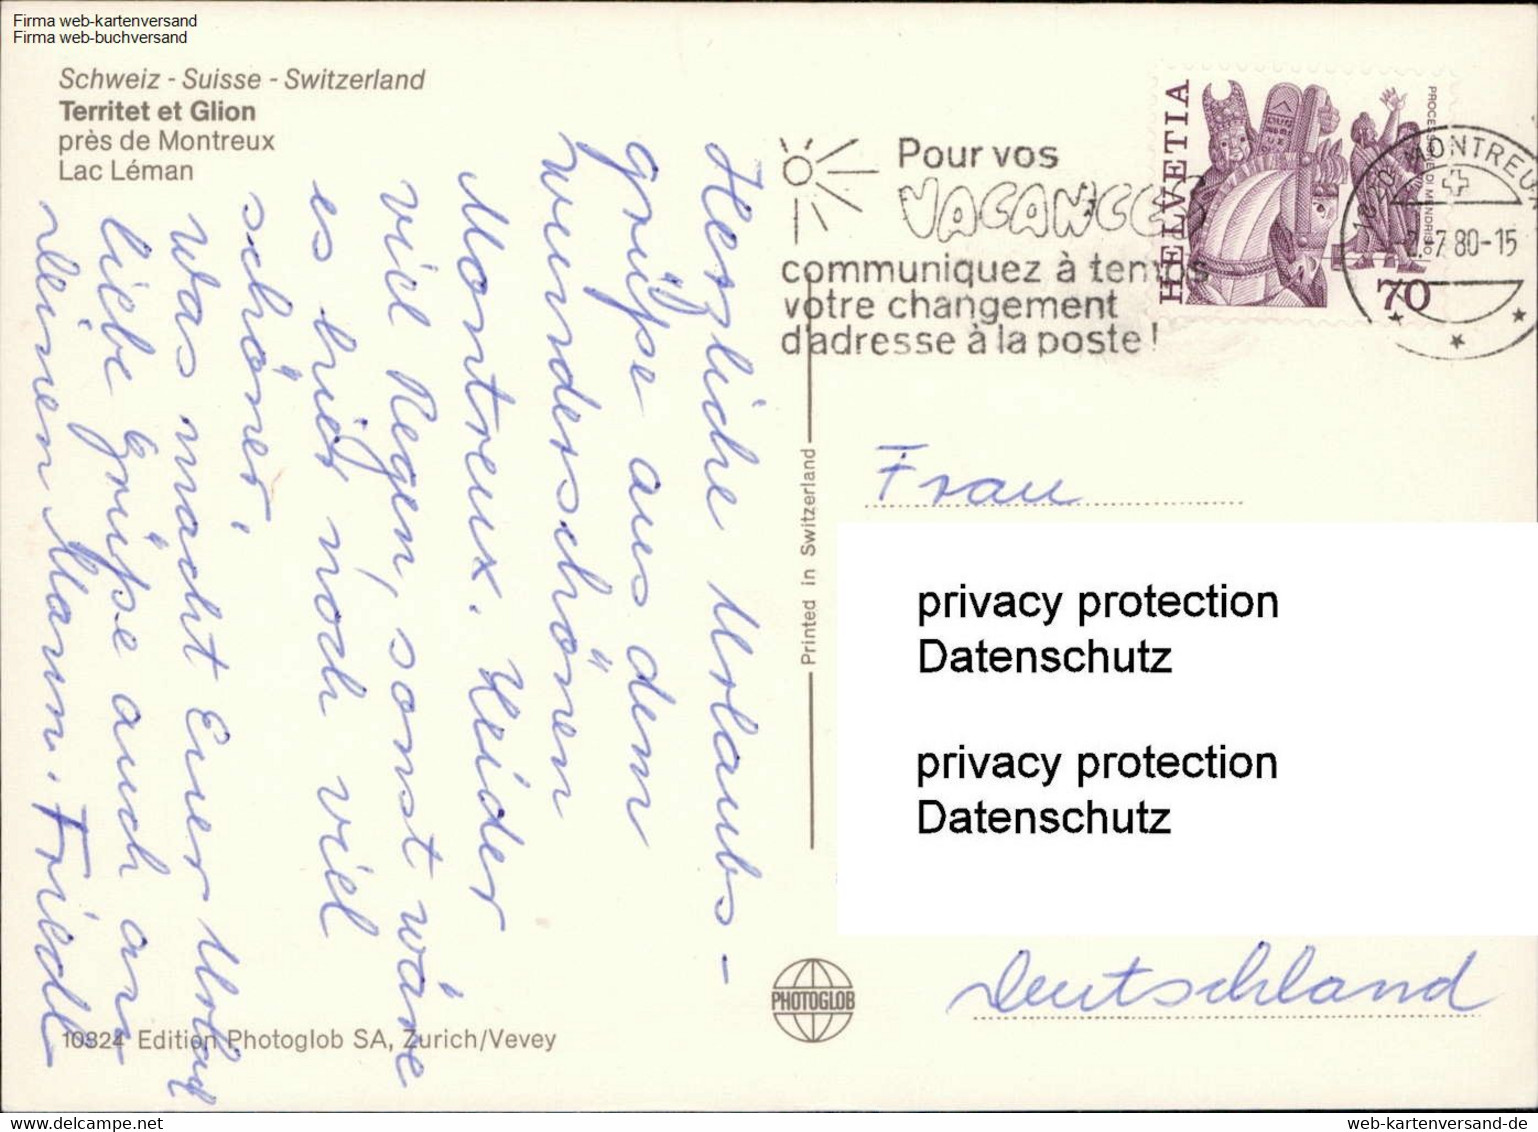 Firma web-kartenversand
Firma web-buchversand
Schweiz - Suisse - Switzerland
Territet et Glion
près de Montreux
Lac Léman
Herzliche Urlaubs-
grüße aus dem
wunderschönen
Montreux. Leider
viel Regen, sonst wäre
es hier noch viel
schöner.
Was macht Euer Urlaub
liebe Grüße auch an
deinen Mann. Friedl
10824 Edition Photoglob SA, Zurich/Vevey
Printed in Switzerland
PHOTOGLOB
Pour vos
VACANCES
communiquez à temps
votre changement
d'adresse à la poste!
HELVETIA
70
MONTREUX
7 80-15
Frau
privacy protection
Datenschutz
privacy protection
Datenschutz
Deutschland
www.delcampe.net
web-kartenversand-de